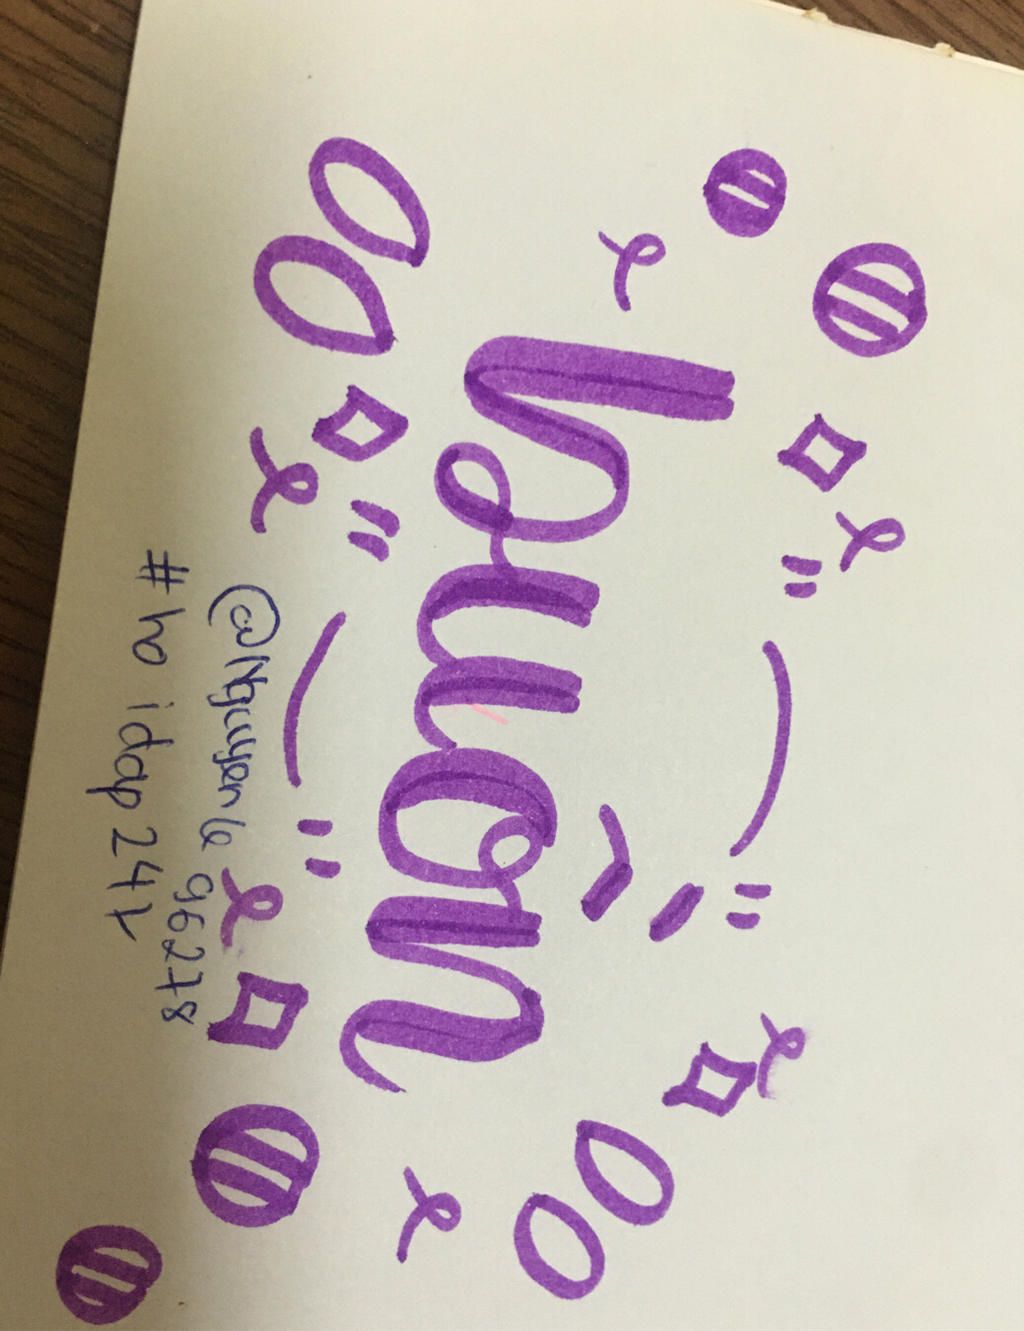 buồn
@Nguyenle 96278
#hoidap247